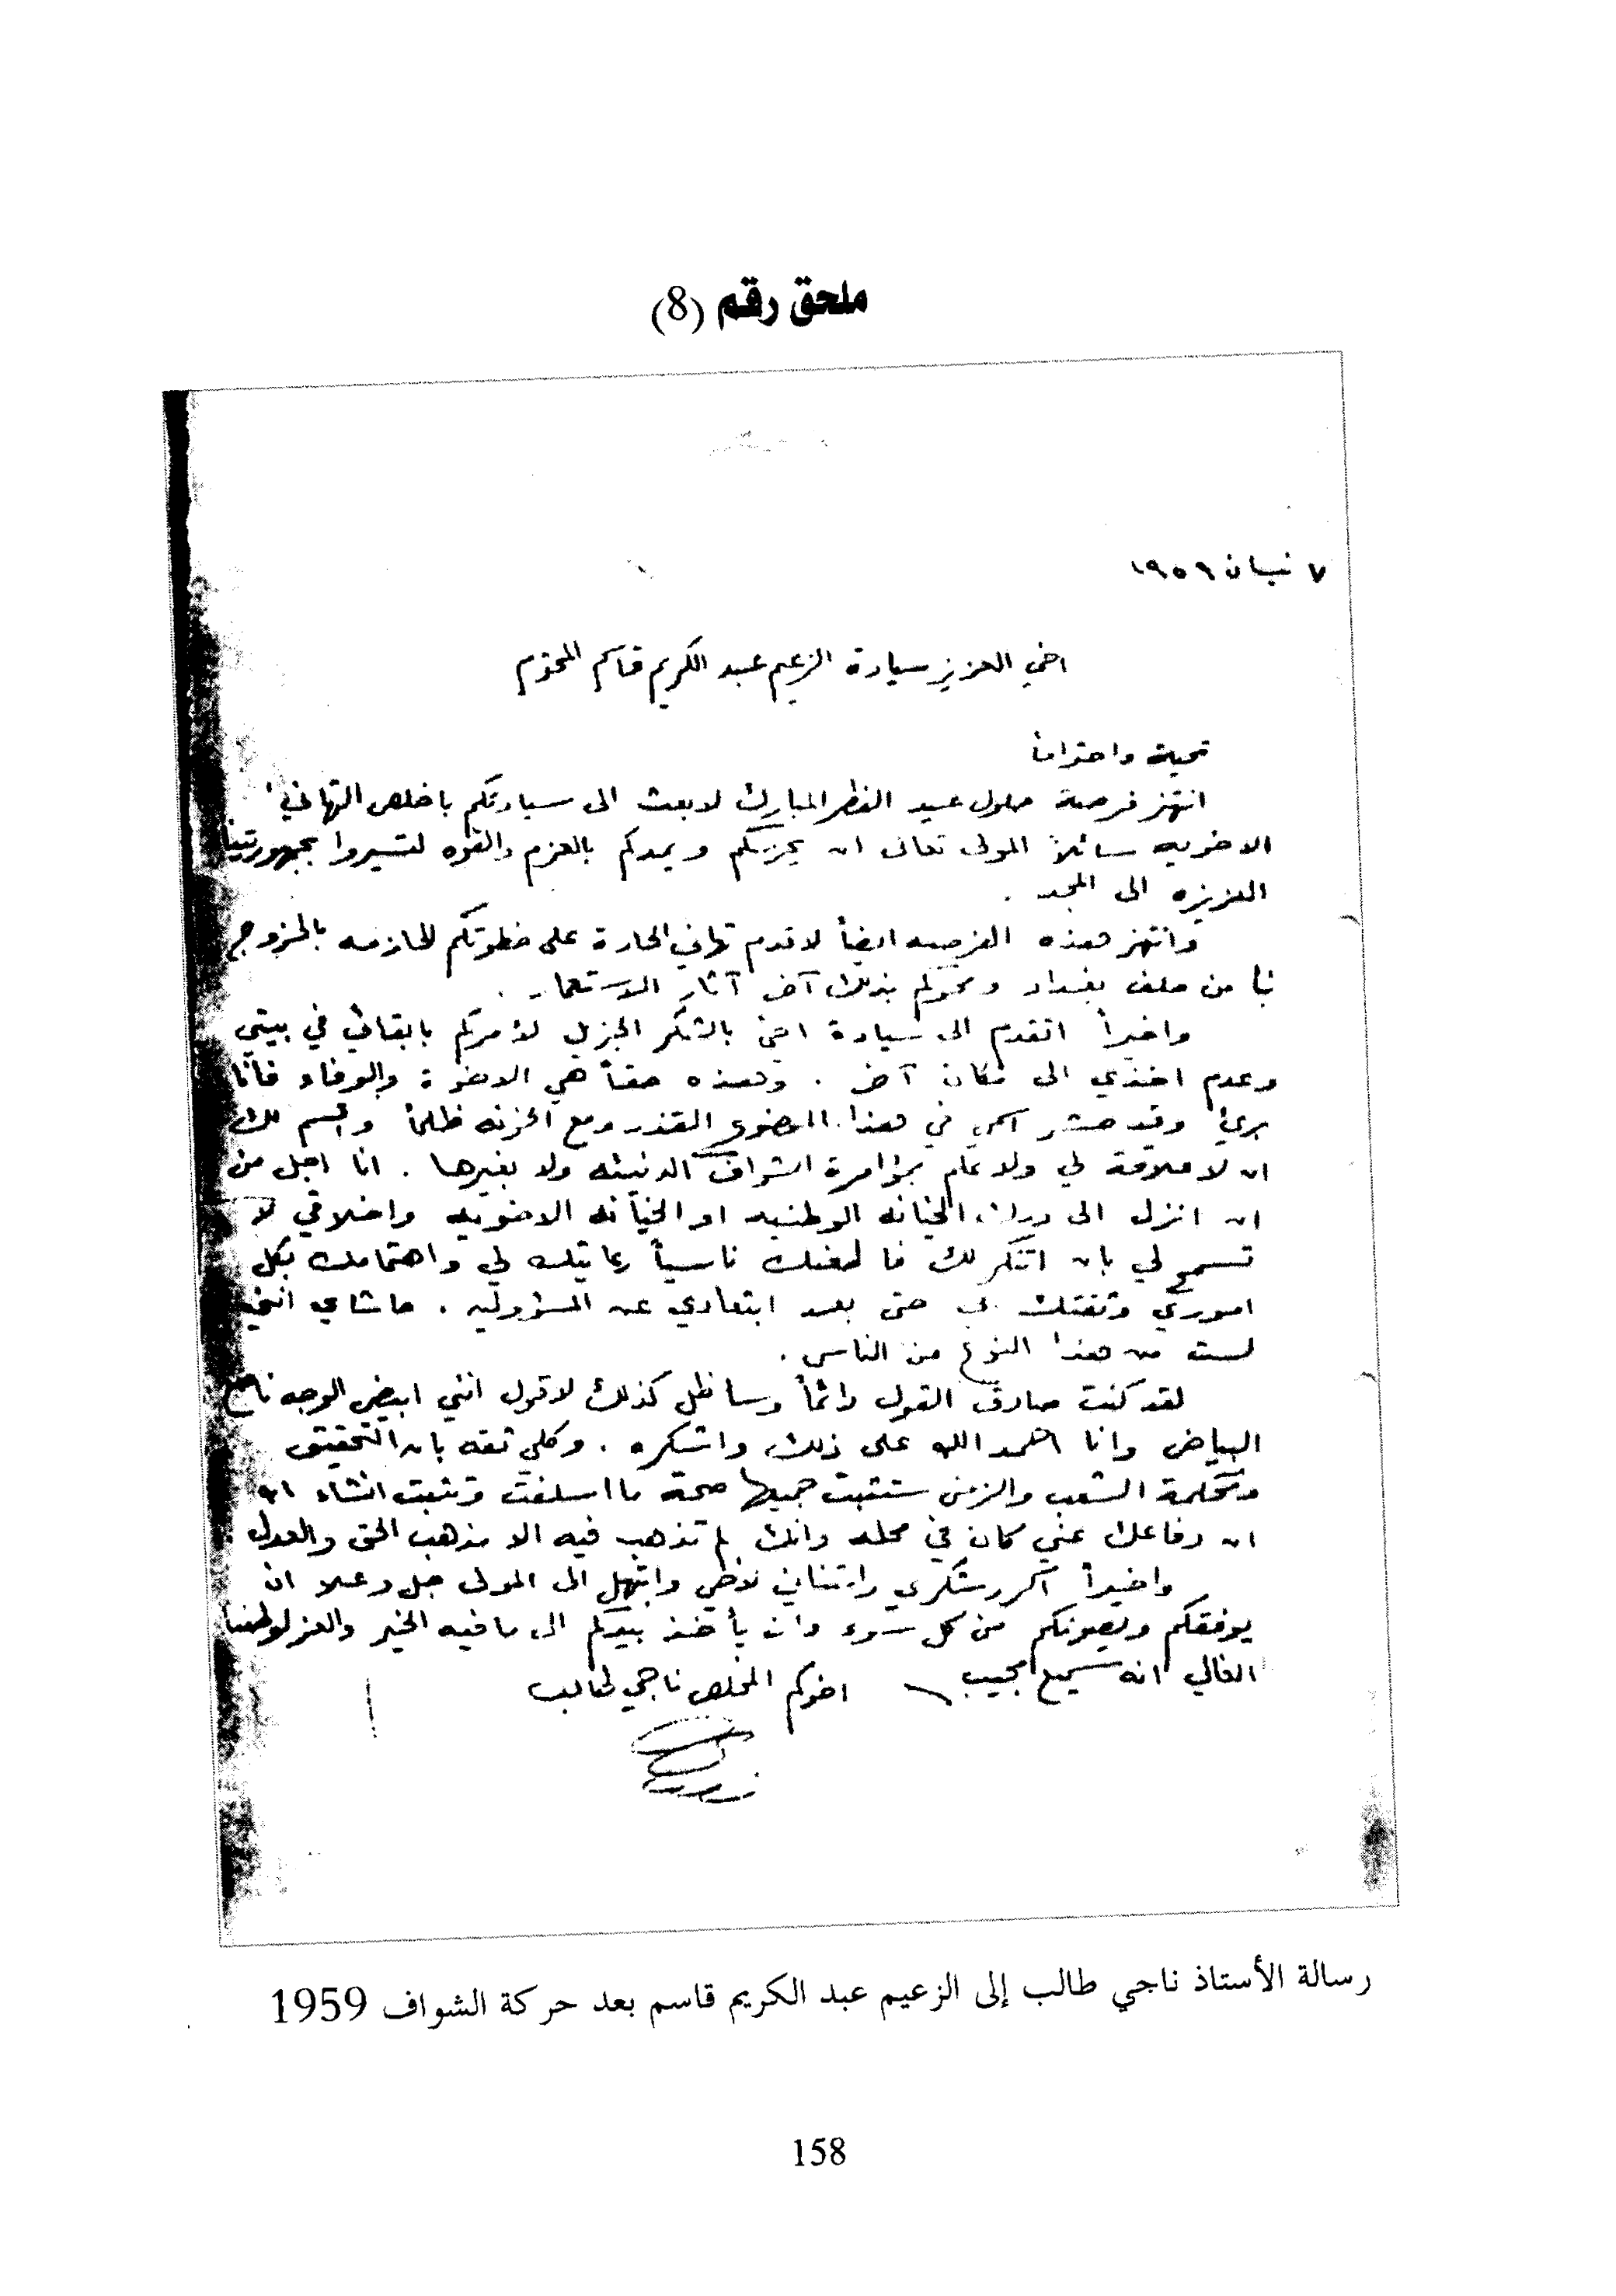 ملحق رقم (8)
٧ نيسان ١٩٥٩
اخي العزيز سيادة الزعيم عبد الكريم قاسم المحترم
تحية واحتراماً
انتهز فرصة حلول عيد الفطر المبارك لابعث الى سيادتكم باخلص التهاني
الاخويه سائلاً المولى تعالى ان يحرسكم ويمدكم بالعزم والقوه لتسيروا بجمهوريتنا
العزيزه الى المجد .
وانتهز هذه الفرصه ايضاً لاقدم تهاني الحارة على خطوتكم الحازمه بالخروج
بنا من حلف بغداد ومحوكم بذلك آخر آثار الاستعمار .
واخيراً اتقدم الى سيادة اخي بالشكر الجزيل لأمركم بابقائي في بيتي
وعدم اخذي الى مكان آخر . وهذه حقاً هي الاخوة والوفاء فأنا
برئ وقد حشر اسمي في هذا الموضوع القذر ومع الخونه ظلماً واقسم لك
ان لا علاقة لي ولا علم بمؤامرة الشواف الدنيئه ولا بغيرها . انا اجل من
ان انزل الى درك الخيانه الوطنيه او الخيانه الاخويه واخلاقي لا
تسمح لي بان اتنكر لك فا لطعنك ناسياً رعايتك لي واهتمامك بكل
اموري وثقتك بي حتى بعد ابتعادي عن المسؤوليه . حاشاي انني
لست من هذا النوع من الناس .
لقد كنت صادق القول دائماً وساظل كذلك لاقول انني ابيض الوجه ناصع
البياض وانا احمد الله على ذلك واشكره . وكلي ثقه بان التحقيق
ومحكمة الشعب والزمن ستثبت جميعها صحة ما اسلفت وتثبت انشاء الله
ان دفاعك عني كان في محله وانك لم تذهب فيه الا مذهب الحق والعدل
واخيراً اكرر شكري وامتناني لاخي وابتهل الى المولى جل وعلا ان
يوفقكم ويصونكم من كل سوء وان يأخذ بيدكم الى ما فيه الخير والعز لوطننا
الغالي انه سميع مجيب
اخوكم المخلص ناجي طالب
رسالة الأستاذ ناجي طالب إلى الزعيم عبد الكريم قاسم بعد حركة الشواف 1959
158